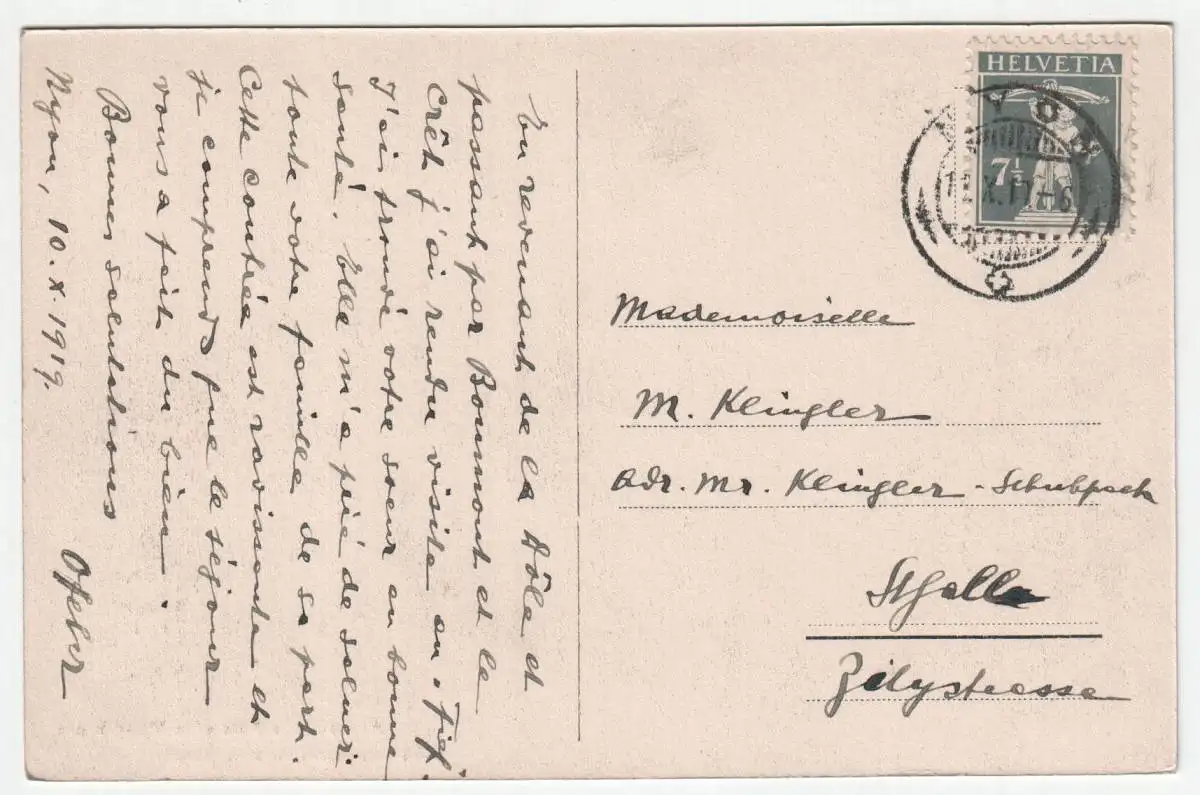 En revenant de la Dôle et
passant par Bonmont et le
Crêt j'ai rendu visite au "Fief".
J'ai trouvé votre soeur en bonne
santé. Elle m'a prié de saluer
toute votre famille de sa part.
Cette contrée est ravissante et
je comprends que le séjour
vous a fait du bien.
Bonnes salutations
Nyon, 10.X.1919.
HELVETIA
7½
NYON
Mademoiselle
M. Klingler
adr. Mr. Klingler-
StGalle
Zilystrasse